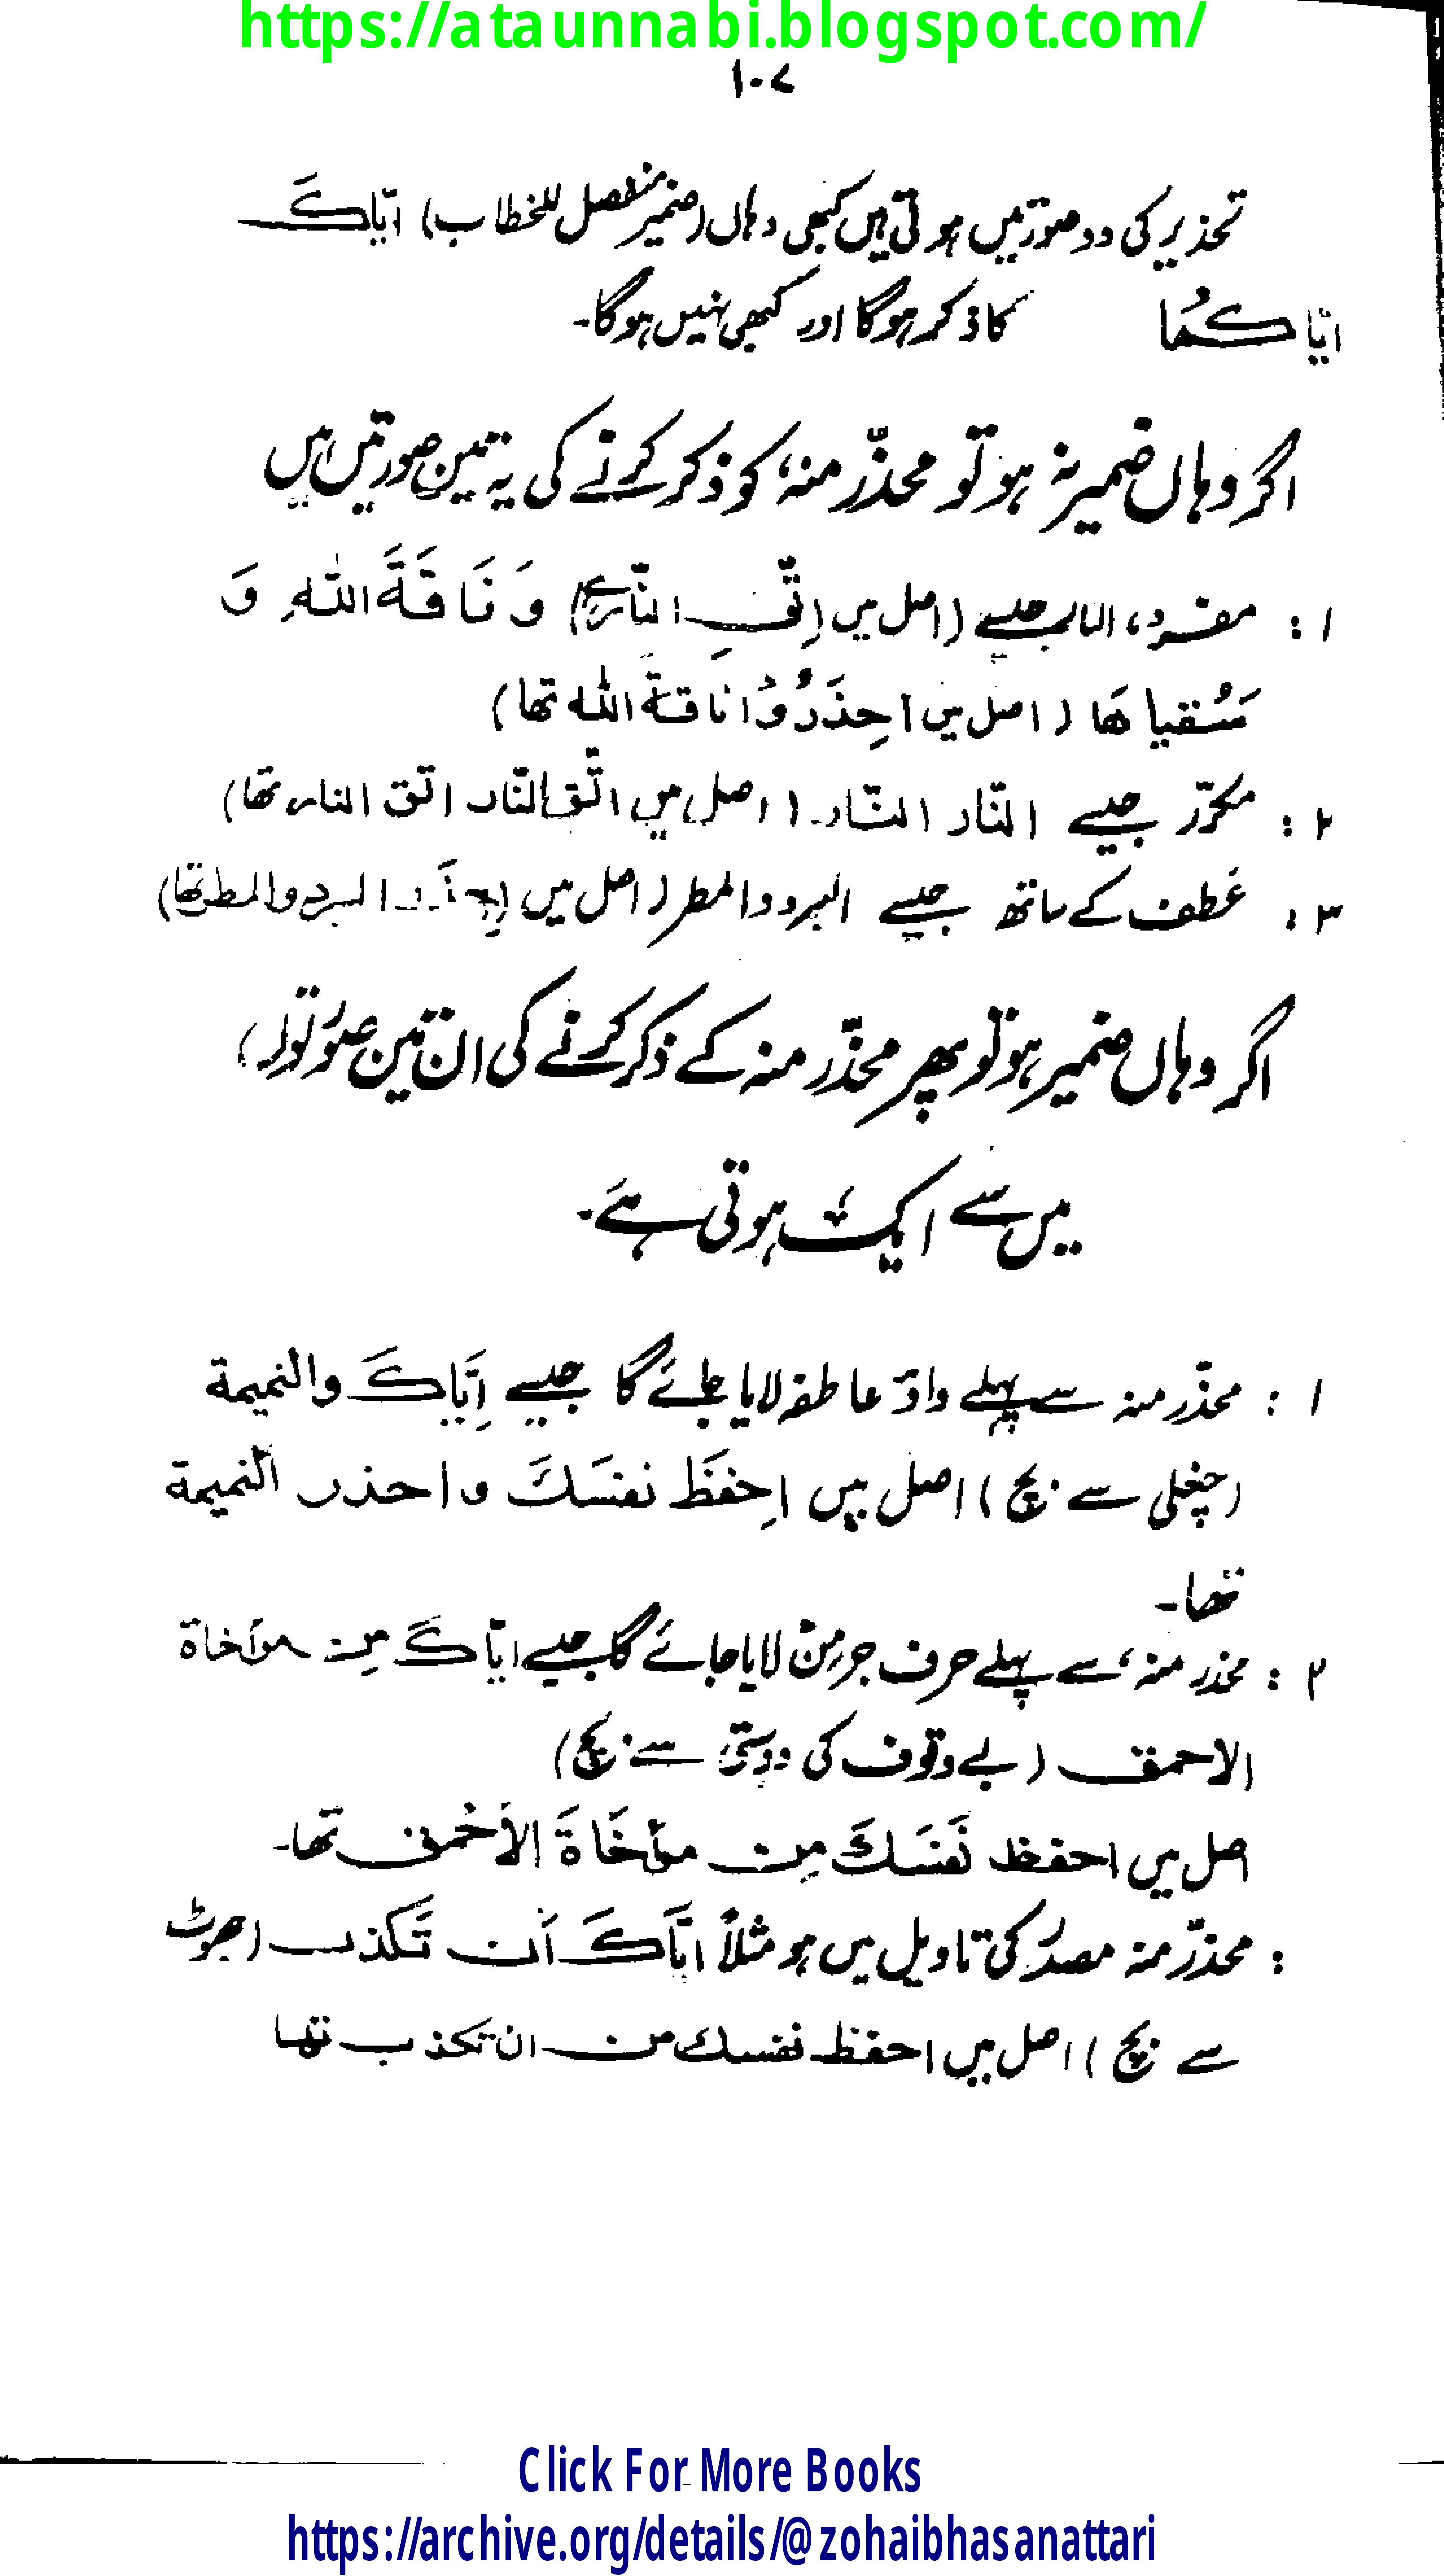 https://ataunnabi.blogspot.com/
۱۰۷
تحذیر کی دو صورتیں ہوتی ہیں کبھی وہاں (ضمیر منفصل للخطاب) ایّاکَ
ایّاکُما کا ذکر ہوگا اور کبھی نہیں ہوگا۔
اگر وہاں ضمیر نہ ہو تو محذّر منہ، کو ذکر کرنے کی یہ تین صورتیں ہیں
۱: مفرد، النار جیسے (اصل میں اِتَّقِ النّار ہے) وَ نَاقَةَ اللّٰهِ وَ
سُقیاھَا (اصل میں احِذَرُوْا نَاقةَ اللّٰه تھا)
۲: مکرّر جیسے النّار النّار۔ (اصل میں اتّق النّار اتق النار تھا)
۳: عَطف کے ساتھ جیسے البرد والمطر (اصل میں البرد والمطر تھا)
اگر وہاں ضمیر ہو تو پھر محذّر منہ کے ذکر کرنے کی ان تین صورتوں
میں سے ایک ہوتی ہے۔
۱: محذّر منہ سے پہلے واؤ عاطفہ لایا جائے گا جیسے اِیَّاکَ والنمیمة
(چغلی سے بچ) اصل میں اِحفَظَ نفسَكَ واحذر النمیمة
تھا۔
۲: محذر منہ، سے پہلے حرف جر مِنْ لایا جائے گا جیسے ایّاکَ مِن مؤاخاة
الاحمق (بے وقوف کی دوستی سے بچ)
اصل میں احفظ نَفسَكَ مِن مؤاخَاةَ الأحْمق تھا۔
: محذّر منہ مصدر کی تاویل میں ہو مثلاً ایَّاکَ اَن تَکذب (جھوٹ
سے بچ) اصل میں احفظ نفسك من ان تکذب تھا
Click For More Books
https://archive.org/details/@zohaibhasanattari